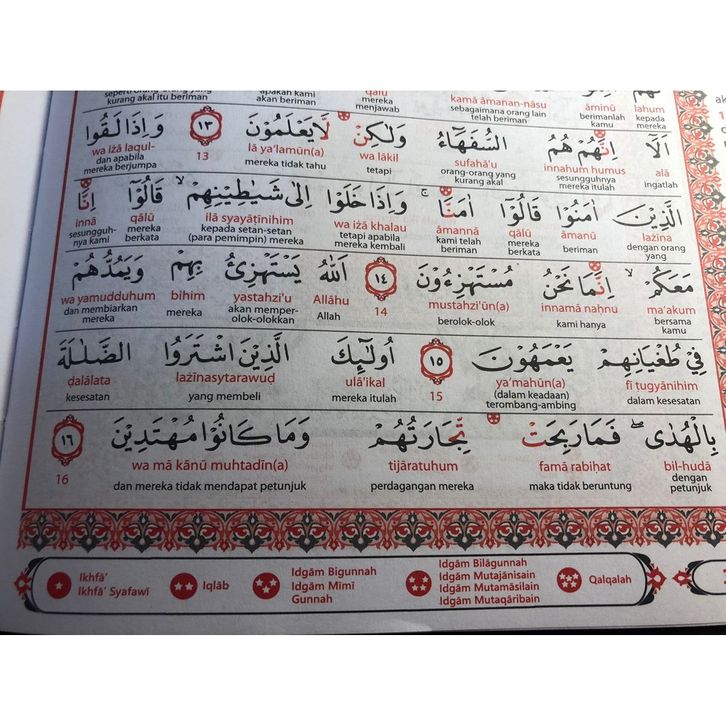 seperti orang-orang yang apakah kami qālū kamā āmanan-nāsu āminū lahum
kurang akal itu beriman akan beriman mereka menjawab sebagaimana orang lain telah beriman berimanlah kamu kepada mereka
اَلَآ اِنَّهُمْ هُمُ السُّفَهَاۤءُ وَلٰكِنْ لَّا يَعْلَمُوْنَ ١٣ وَاِذَا لَقُوا
alā innahum humus sufahā'u wa lākil lā ya'lamūn(a) 13 wa iżā laqul-
ingatlah sesungguhnya mereka itulah orang-orang yang kurang akal tetapi mereka tidak tahu dan apabila mereka berjumpa
الَّذِيْنَ اٰمَنُوْا قَالُوْٓا اٰمَنَّا ۚ وَاِذَا خَلَوْا اِلٰى شَيٰطِيْنِهِمْ ۙ قَالُوْٓا اِنَّا
lażīna āmanū qālū āmannā wa iżā khalau ilā syayāṭīnihim qālū innā
dengan orang yang beriman mereka berkata kami telah beriman tetapi apabila mereka kembali kepada setan-setan (para pemimpin) mereka mereka berkata sesungguh-nya kami
مَعَكُمْ ۙ اِنَّمَا نَحْنُ مُسْتَهْزِءُوْنَ ١٤ اَللّٰهُ يَسْتَهْزِئُ بِهِمْ وَيَمُدُّهُمْ
ma'akum innamā naḥnu mustahzi'ūn(a) 14 Allāhu yastahzi'u bihim wa yamudduhum
bersama kamu kami hanya berolok-olok Allah akan memper-olok-olokkan mereka dan membiarkan mereka
فِيْ طُغْيَانِهِمْ يَعْمَهُوْنَ ١٥ اُولٰۤىِٕكَ الَّذِيْنَ اشْتَرَوُا الضَّلٰلَةَ
fī ṭugyānihim ya'mahūn(a) 15 ulā'ikal lażīnasytarawuḍ ḍalālata
dalam kesesatan (dalam keadaan) terombang-ambing mereka itulah yang membeli kesesatan
بِالْهُدٰىۖ فَمَا رَبِحَتْ تِّجَارَتُهُمْ وَمَا كَانُوْا مُهْتَدِيْنَ ١٦
bil-hudā famā rabiḥat tijāratuhum wa mā kānū muhtadīn(a) 16
dengan petunjuk maka tidak beruntung perdagangan mereka dan mereka tidak mendapat petunjuk
Ikhfā'
Ikhfā' Syafawī
Iqlāb
Idgām Bigunnah
Idgām Mīmī
Gunnah
Idgām Bilāgunnah
Idgām Mutajānisain
Idgām Mutamāṡilain
Idgām Mutaqāribain
Qalqalah